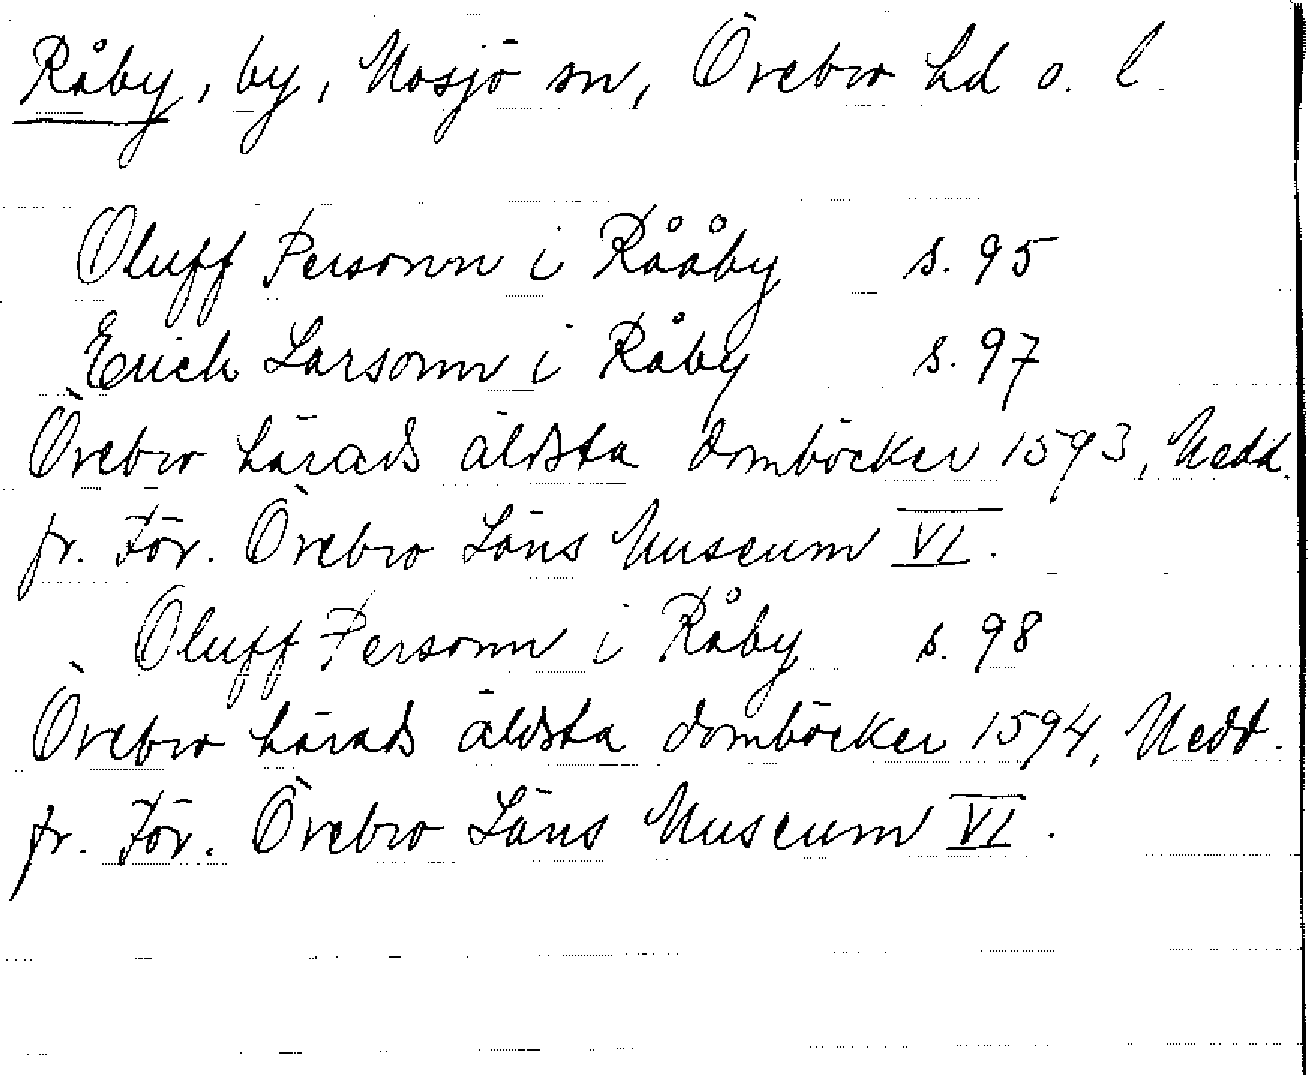 Råby, by, Mosjö sn, Örebro hd o. l.
Oluff Personn i Rååby s. 95
Erich Larsonn i Råby s. 97
Örebro härads äldsta domböcker 1593, Medd.
fr. För. Örebro Läns Museum VI.
Oluff Personn i Råby s. 98
Örebro härads äldsta domböcker 1594, Medd.
fr. För. Örebro Läns Museum VI.